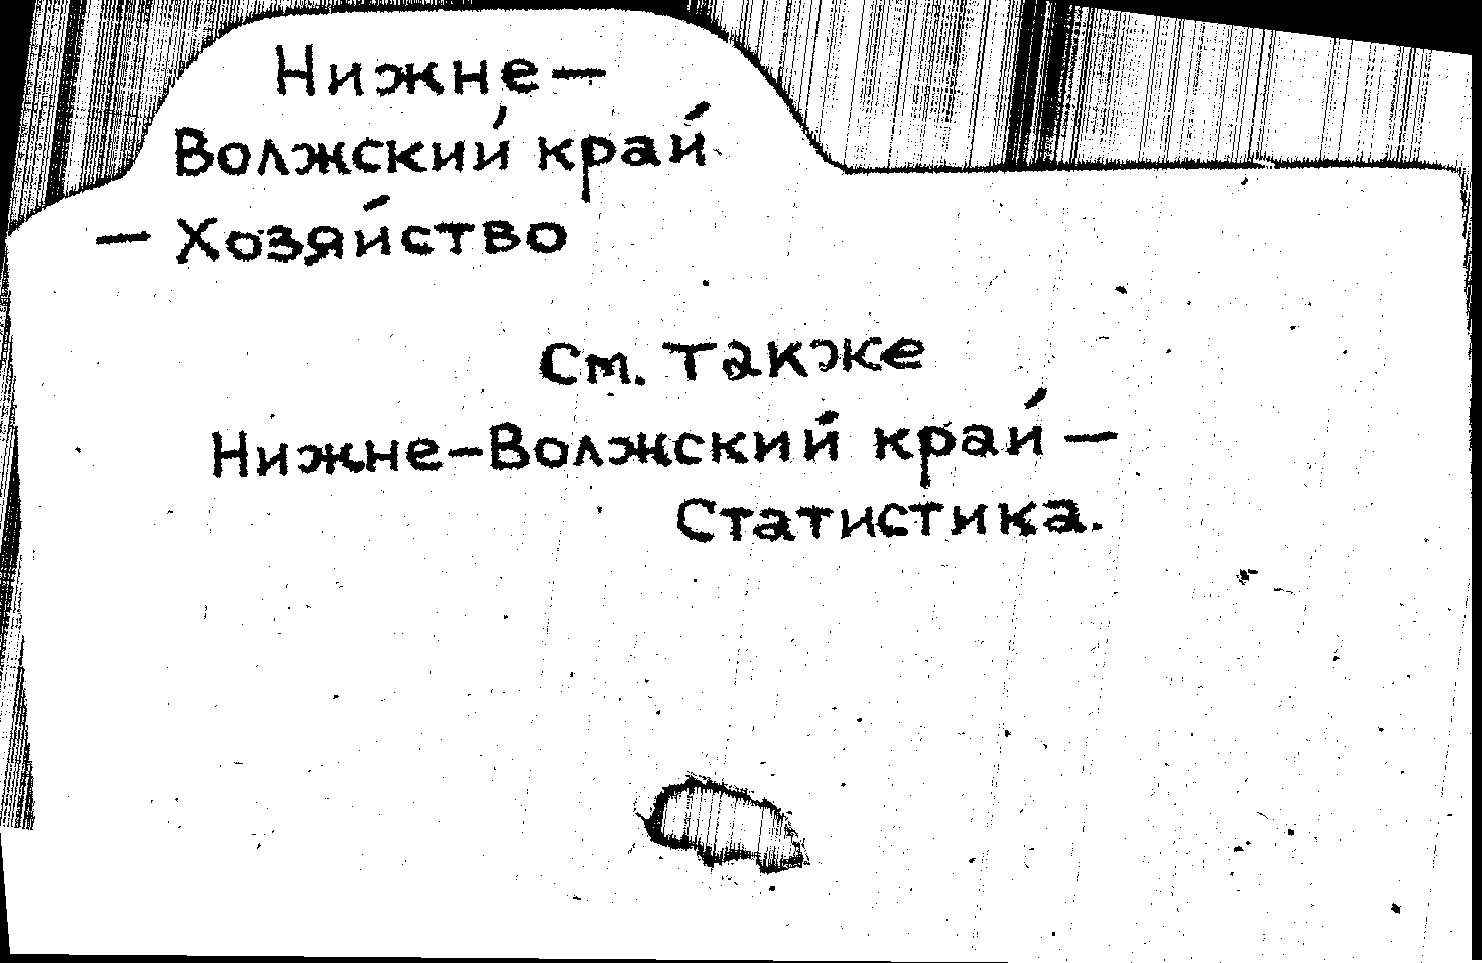 Нижне–
Волжский край
– Хозяйство
См. также
Нижне–Волжский край –
Статистика.